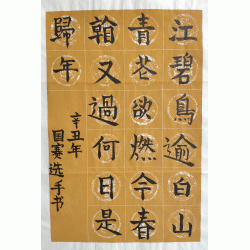 江碧鳥逾白山
青花欲燃今春
看又過何日是
歸年
辛丑年
国赛选手书